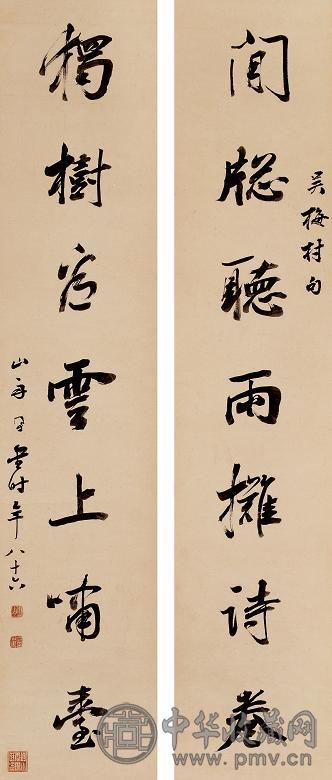 吴梅村句
閒牕聽雨攤詩卷
獨樹看雲上嘯臺
山舟同書时年八十六
中华收藏网
www.pmv.cn